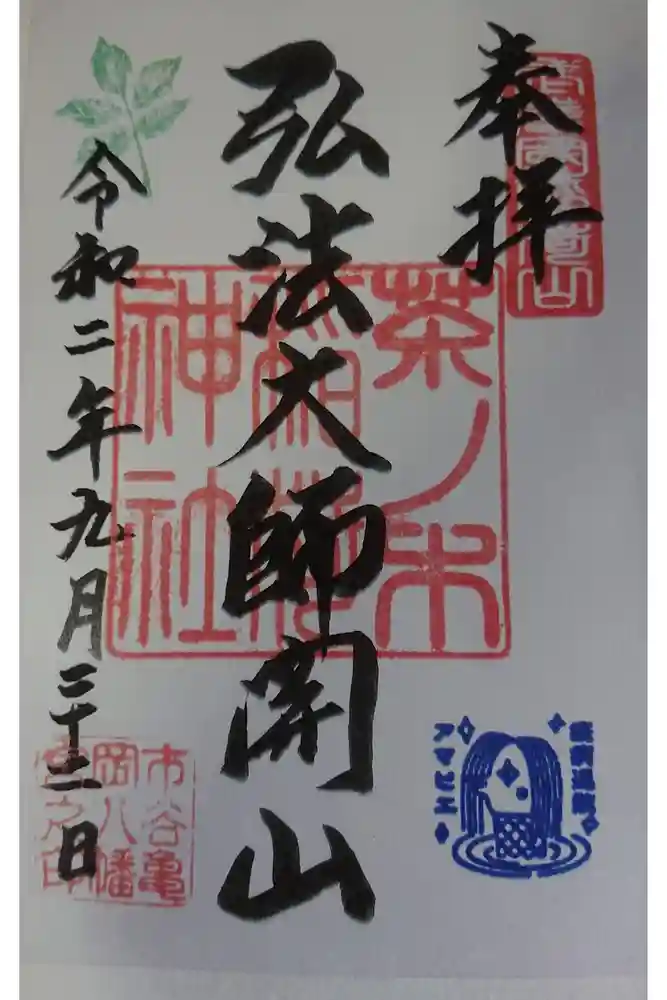 奉拝
弘法大師開山
茶ノ木
稲荷
神社
令和二年九月二十二日
市谷亀
岡八幡
宮之印
アマビエ